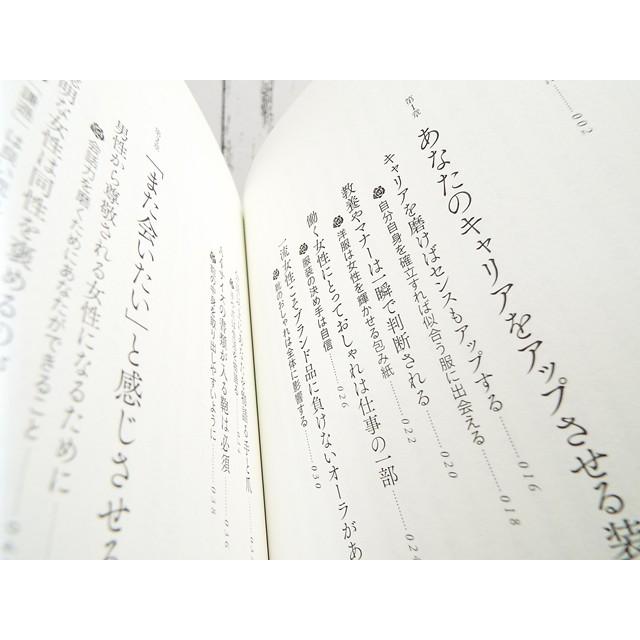 ……002
第1章 あなたのキャリアをアップさせる装
キャリアを磨けばセンスもアップする……016
自分自身を確立すれば似合う服に出会える……018
教養やマナーは一瞬で判断される……020
洋服は女性を輝かせる包み紙……022
働く女性にとっておしゃれは仕事の一部……024
服装の決め手は自信……026
一流女性こそブランド品に負けないオーラがあ
靴のおしゃれは全体に影響する……030
サイズの書類が入る鞄は必須……036
「また会いたい」と感じさせる
男性から尊敬される女性になるために
会話力を磨くためにあなたができること
明な女性は同性を褒めるの